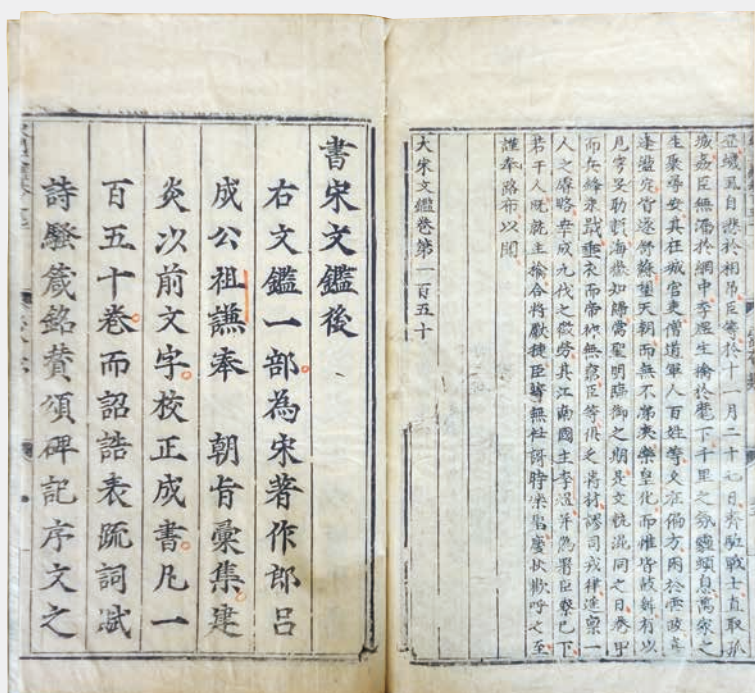 風自悲於相吊臣等於十一月二十七日齊驅戰士直取孤
城姦臣無漏於網中李煜生擒於麾下千里之氛霾頓息萬家之
生聚尋安其在城官吏僧道軍人百姓等久在偏方困於虐政喜
逢盪定皆遂舒蘇望天朝而無不涕洟樂皇化而惟皆鼓舞有以
見穹旻助順海嶽知歸當聖明臨御之期是文軌混同之日卷甲
而兵鋒永戢垂衣而帝祚無窮臣等俱乏將材謬司戎律遙稟一
人之睿略幸成九伐之微勞其江南國主李煜并偽署臣寮已下
若干人既就生擒合將獻捷臣等無任謌時樂聖慶快歡呼之至
謹奉露布以聞
大宋文鑑卷第一百五十
書宋文鑑後
右文鑑一部為宋著作郎呂
成公祖謙奉 朝旨彙集建
炎以前文字校正成書凡一
百五十卷而詔誥表疏詞賦
詩騷箴銘贊頌碑記序文之